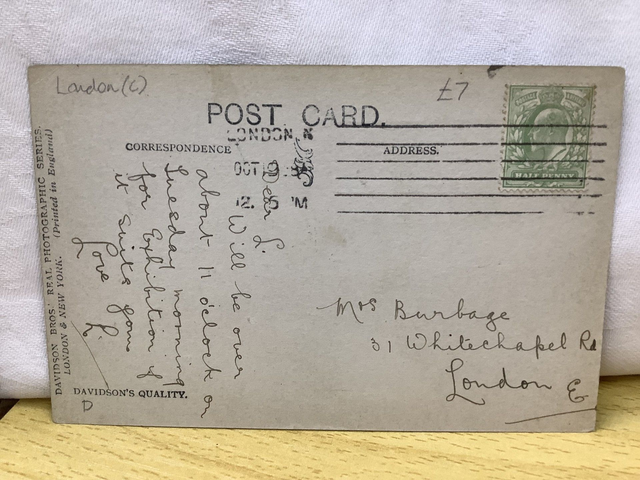 London (C)
£7
POST CARD.
LONDON. N
CORRESPONDENCE
ADDRESS.
OCT 19
12. 15 PM
HALF PENNY
Dear L.
Will be over
about 11 o'clock on
Tuesday morning
for Exhibition if
it suits you
Love
L.
Mrs Burbage
31 Whitechapel Rd
London E
DAVIDSON BROS' REAL PHOTOGRAPHIC SERIES.
LONDON & NEW YORK. (Printed in England)
DAVIDSON'S QUALITY.
D